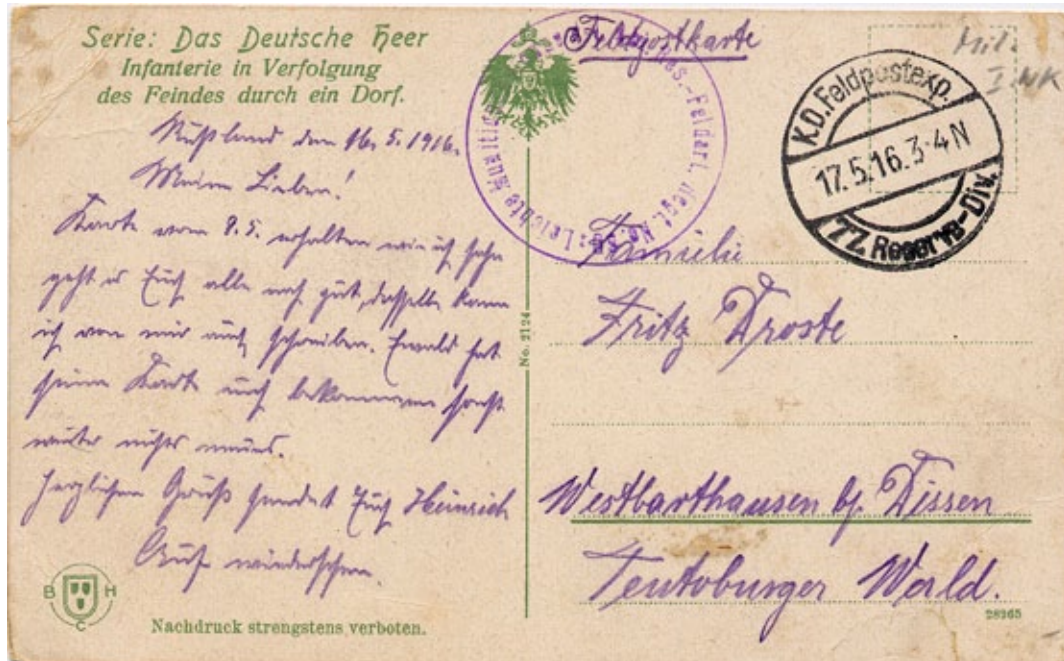 Serie: Das Deutsche Heer
Infanterie in Verfolgung
des Feindes durch ein Dorf.
Rußland den 16. 5. 1916.
Meine Lieben!
Karte vom 8.5. erhalten wie ich sehe
geht es Euch alle noch gut, dasselbe kann
ich von mir auch schreiben. Ewald hat
seine Karte auch bekommen sonst
weiter nichts neues.
Herzlichen Gruß sendet Euch Heinrich
Auf wiedersehen.
B H C
Nachdruck strengstens verboten.
No. 2124
Feldpostkarte
Leichte Munitio Res.-Feldart. Regt. No.
Mil.
K.D. Feldpostexp.
17.5.16. 3-4 N
77. Reserve-Div.
Familie
Fritz Droste
Westbarthausen b/ Dissen
Teutoburger Wald.
28265